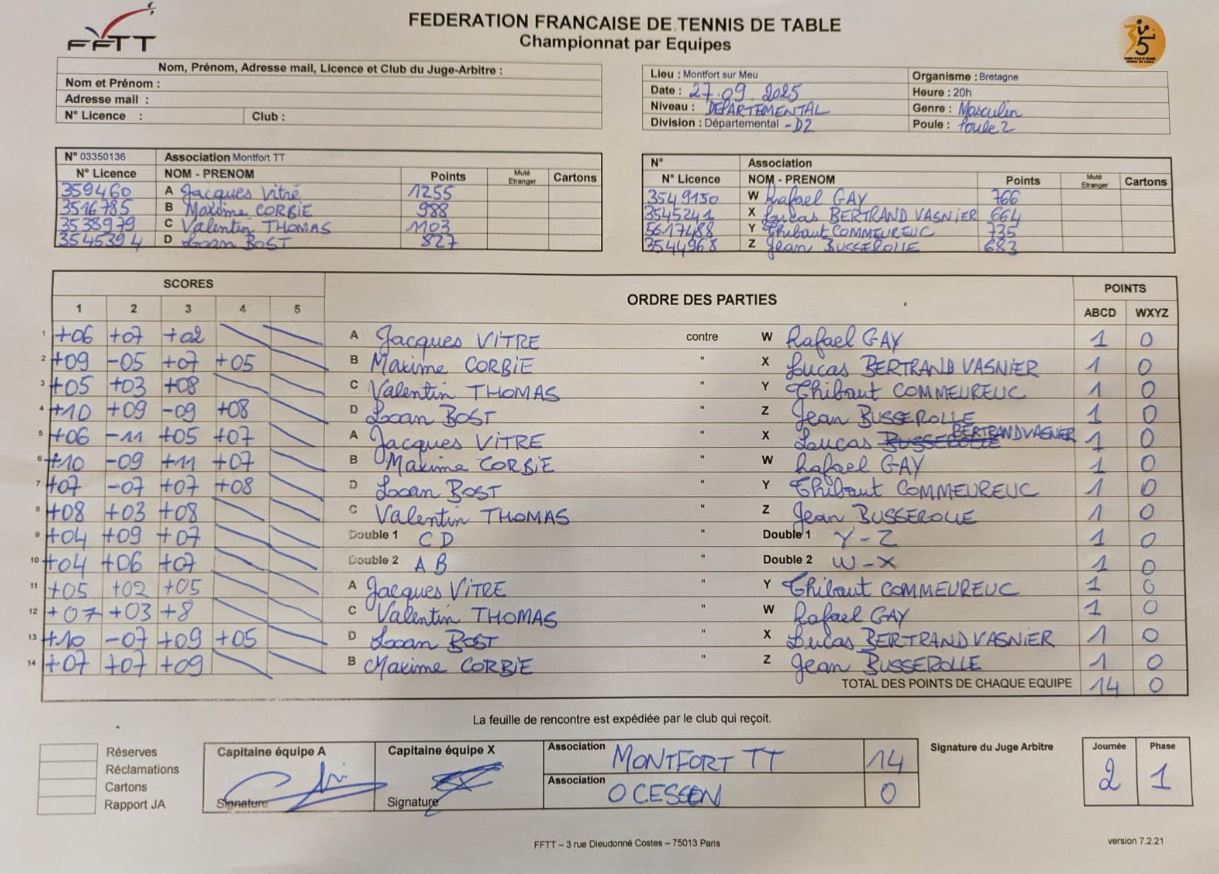 FEDERATION FRANCAISE DE TENNIS DE TABLE
Championnat par Equipes
FFTT
Nom, Prénom, Adresse mail, Licence et Club du Juge-Arbitre :
Nom et Prénom :
Adresse mail :
N° Licence : Club :
Lieu : Montfort sur Meu Organisme : Bretagne
Date : 27.09.2025 Heure : 20h
Niveau : DÉPARTEMENTAL Genre : Masculin
Division : Départemental - D2 Poule : Poule 2
N° 03350136 Association Montfort TT
N° Licence NOM - PRENOM Points Muté Etranger Cartons
359460 A Jacques Vitré 1255
3516785 B Maxime CORBiE 988
3538979 C Valentin THOMAS 1103
3545394 D Loan BOST 827
N° Association
N° Licence NOM - PRENOM Points Muté Etranger Cartons
3549150 W Rafael GAY 766
3545241 X Lucas BERTRAND VASNiER 664
5617488 Y Thibaut COMMEUREUC 735
3544968 Z Jean BUSSEROLLE 683
SCORES ORDRE DES PARTIES POINTS
1 2 3 4 5 ABCD WXYZ
1 +06 +07 +02 A Jacques VITRE contre W Rafael GAY 1 0
2 +09 -05 +07 +05 B Maxime CORBiE " X Lucas BERTRAND VASNIER 1 0
3 +05 +03 +08 C Valentin THOMAS " Y Thibaut COMMEUREUC 1 0
4 +10 +09 -09 +08 D Loan BOST " Z Jean BUSSEROLLE 1 0
5 +06 -11 +05 +07 A Jacques VITRE " X Lucas BUSSEROLLE BERTRAND VASNIER 1 0
6 +10 -09 +11 +07 B Maxime CORBiE " W Rafael GAY 1 0
7 +07 -07 +07 +08 D Loan BOST " Y Thibaut COMMEUREUC 1 0
8 +08 +03 +08 C Valentin THOMAS " Z Jean BUSSEROLLE 1 0
9 +04 +09 +07 Double 1 CD Double 1 Y-Z 1 0
10 +04 +06 +07 Double 2 AB " Double 2 W-X 1 0
11 +05 +02 +05 A Jacques ViTRE " Y Thibaut COMMEUREUC 1 0
12 +07 +03 +8 C Valentin THOMAS " W Rafael GAY 1 0
13 +10 -07 +09 +05 D Loan BOST " X Lucas BERTRAND VASNIER 1 0
14 +07 +07 +09 B Maxime CORBiE " Z Jean BUSSEROLLE 1 0
TOTAL DES POINTS DE CHAQUE EQUIPE 14 0
La feuille de rencontre est expédiée par le club qui reçoit.
Réserves
Réclamations
Cartons
Rapport JA
Capitaine équipe A
Signature
Capitaine équipe X
Signature
Association MONTFORT TT 14
Association O CESSON 0
Signature du Juge Arbitre
Journée Phase
2 1
FFTT – 3 rue Dieudonné Costes – 75013 Paris
version 7.2.21